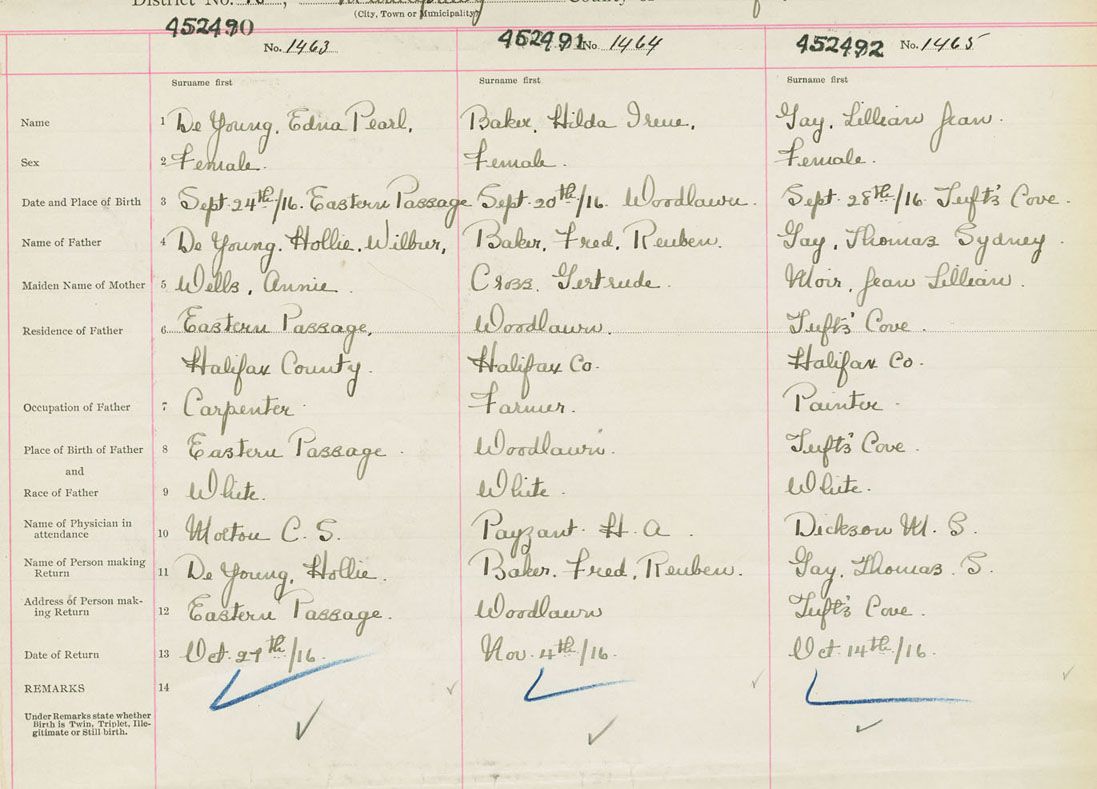 District No.
County
(City, Town or Municipality)
452490 452491 452492
No. 1463 No. 1464 No. 1465
Surname first Surname first Surname first
Name 1 De Young, Edna Pearl, Baker, Hilda Irene, Gay, Lillian Jean.
Sex 2 Female. Female. Female.
Date and Place of Birth 3 Sept 24th/16. Eastern Passage Sept. 20th/16. Woodlawn. Sept. 28th/16 Tuft's Cove.
Name of Father 4 De Young, Hollie, Wilbur, Baker, Fred, Reuben. Gay, Thomas Sydney.
Maiden Name of Mother 5 Wells, Annie. Cross, Gertrude. Moir, Jean Lillian.
Residence of Father 6 Eastern Passage, Woodlawn. Tufts' Cove.
Halifax County. Halifax Co. Halifax Co.
Occupation of Father 7 Carpenter. Farmer. Painter.
Place of Birth of Father 8 Eastern Passage. Woodlawn. Tufts' Cove.
and
Race of Father 9 White. White. White.
Name of Physician in
attendance 10 Morton C. S. Payzant. H. A. Dickson M. S.
Name of Person making
Return 11 De Young, Hollie. Baker, Fred, Reuben. Gay, Thomas. S.
Address of Person mak-
ing Return 12 Eastern Passage. Woodlawn Tuft's Cove.
Date of Return 13 Oct. 27th/16. Nov. 4th/16. Oct 14th/16.
REMARKS 14
Under Remarks state whether
Birth is Twin, Triplet, Ille-
gitimate or Still birth.